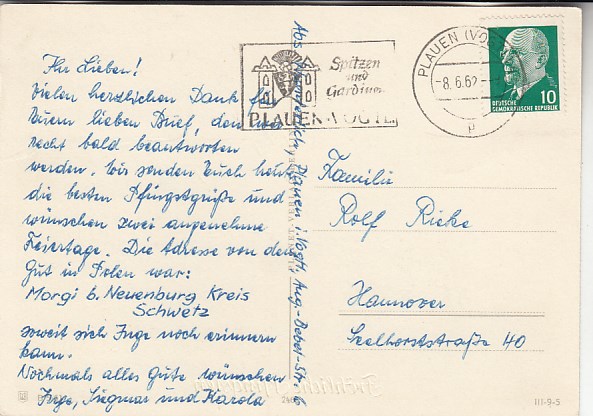 Ihr Lieben!
Vielen herzlichen Dank für
Euern lieben Brief, den wir
recht bald beantworten
werden. Wir senden Euch heute
die besten Pfingstgrüße und
wünschen zwei angenehme
Feiertage. Die Adresse von dem
Gut in Polen war:
Morgi b. Neuenburg Kreis
Schwetz
soweit sich Inge noch erinnern
kann.
Nochmals alles Gute wünschen
Inge, Siegmar und Karola
Abs. Plauen i. Vogtl. Aug.-Bebel-Str. 6
Spitzen
und
Gardinen
PLAUEN-VOGTL.
PLAUEN (VOGTL)
-8.6.62
p
10
DEUTSCHE
DEMOKRATISCHE REPUBLIK
Familie
Rolf Rieke
Hannover
Seelhorststraße 40
III-9-5